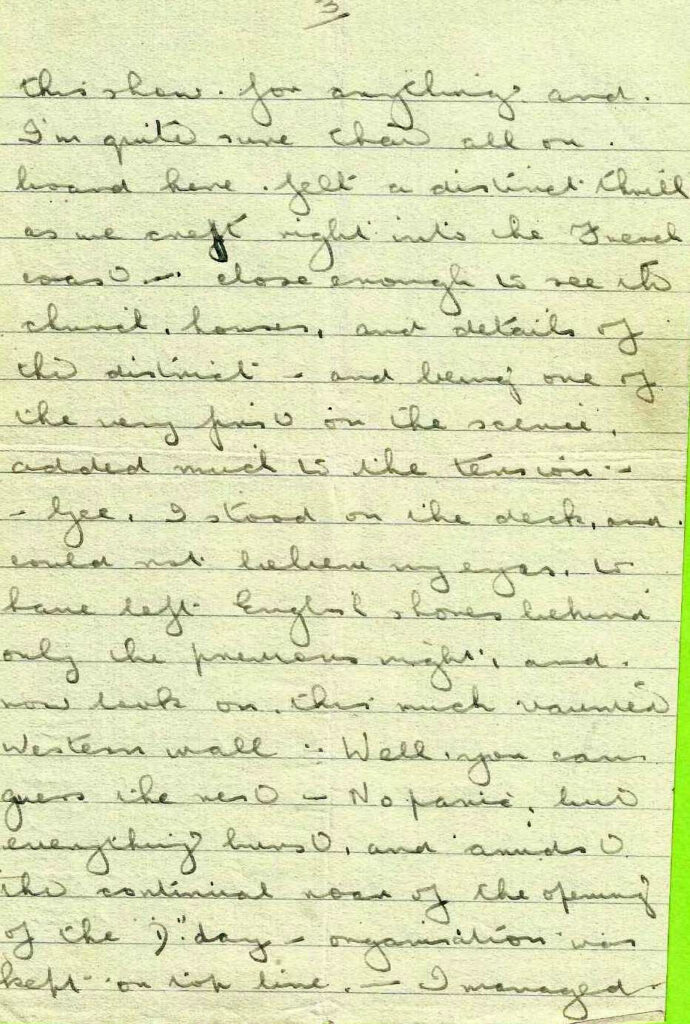 3
this show. for anything. and.
I'm quite sure that all on.
board here. felt a distinct thrill
as we crept right into the French
coast - close enough to see the
church, houses, and details of
the district - and being one of
the very first on the scene,
added much to the tension -
- Gee, I stood on the deck, and.
could not believe my eyes, to
have left English shores behind
only the previous night, and.
now look on. this much vaunted
Western wall :- Well, you can
guess the rest - No panic, but
everything burst, and amidst
the continual roar of the opening
of the "D" day - organisation was
kept on top line. - I managed